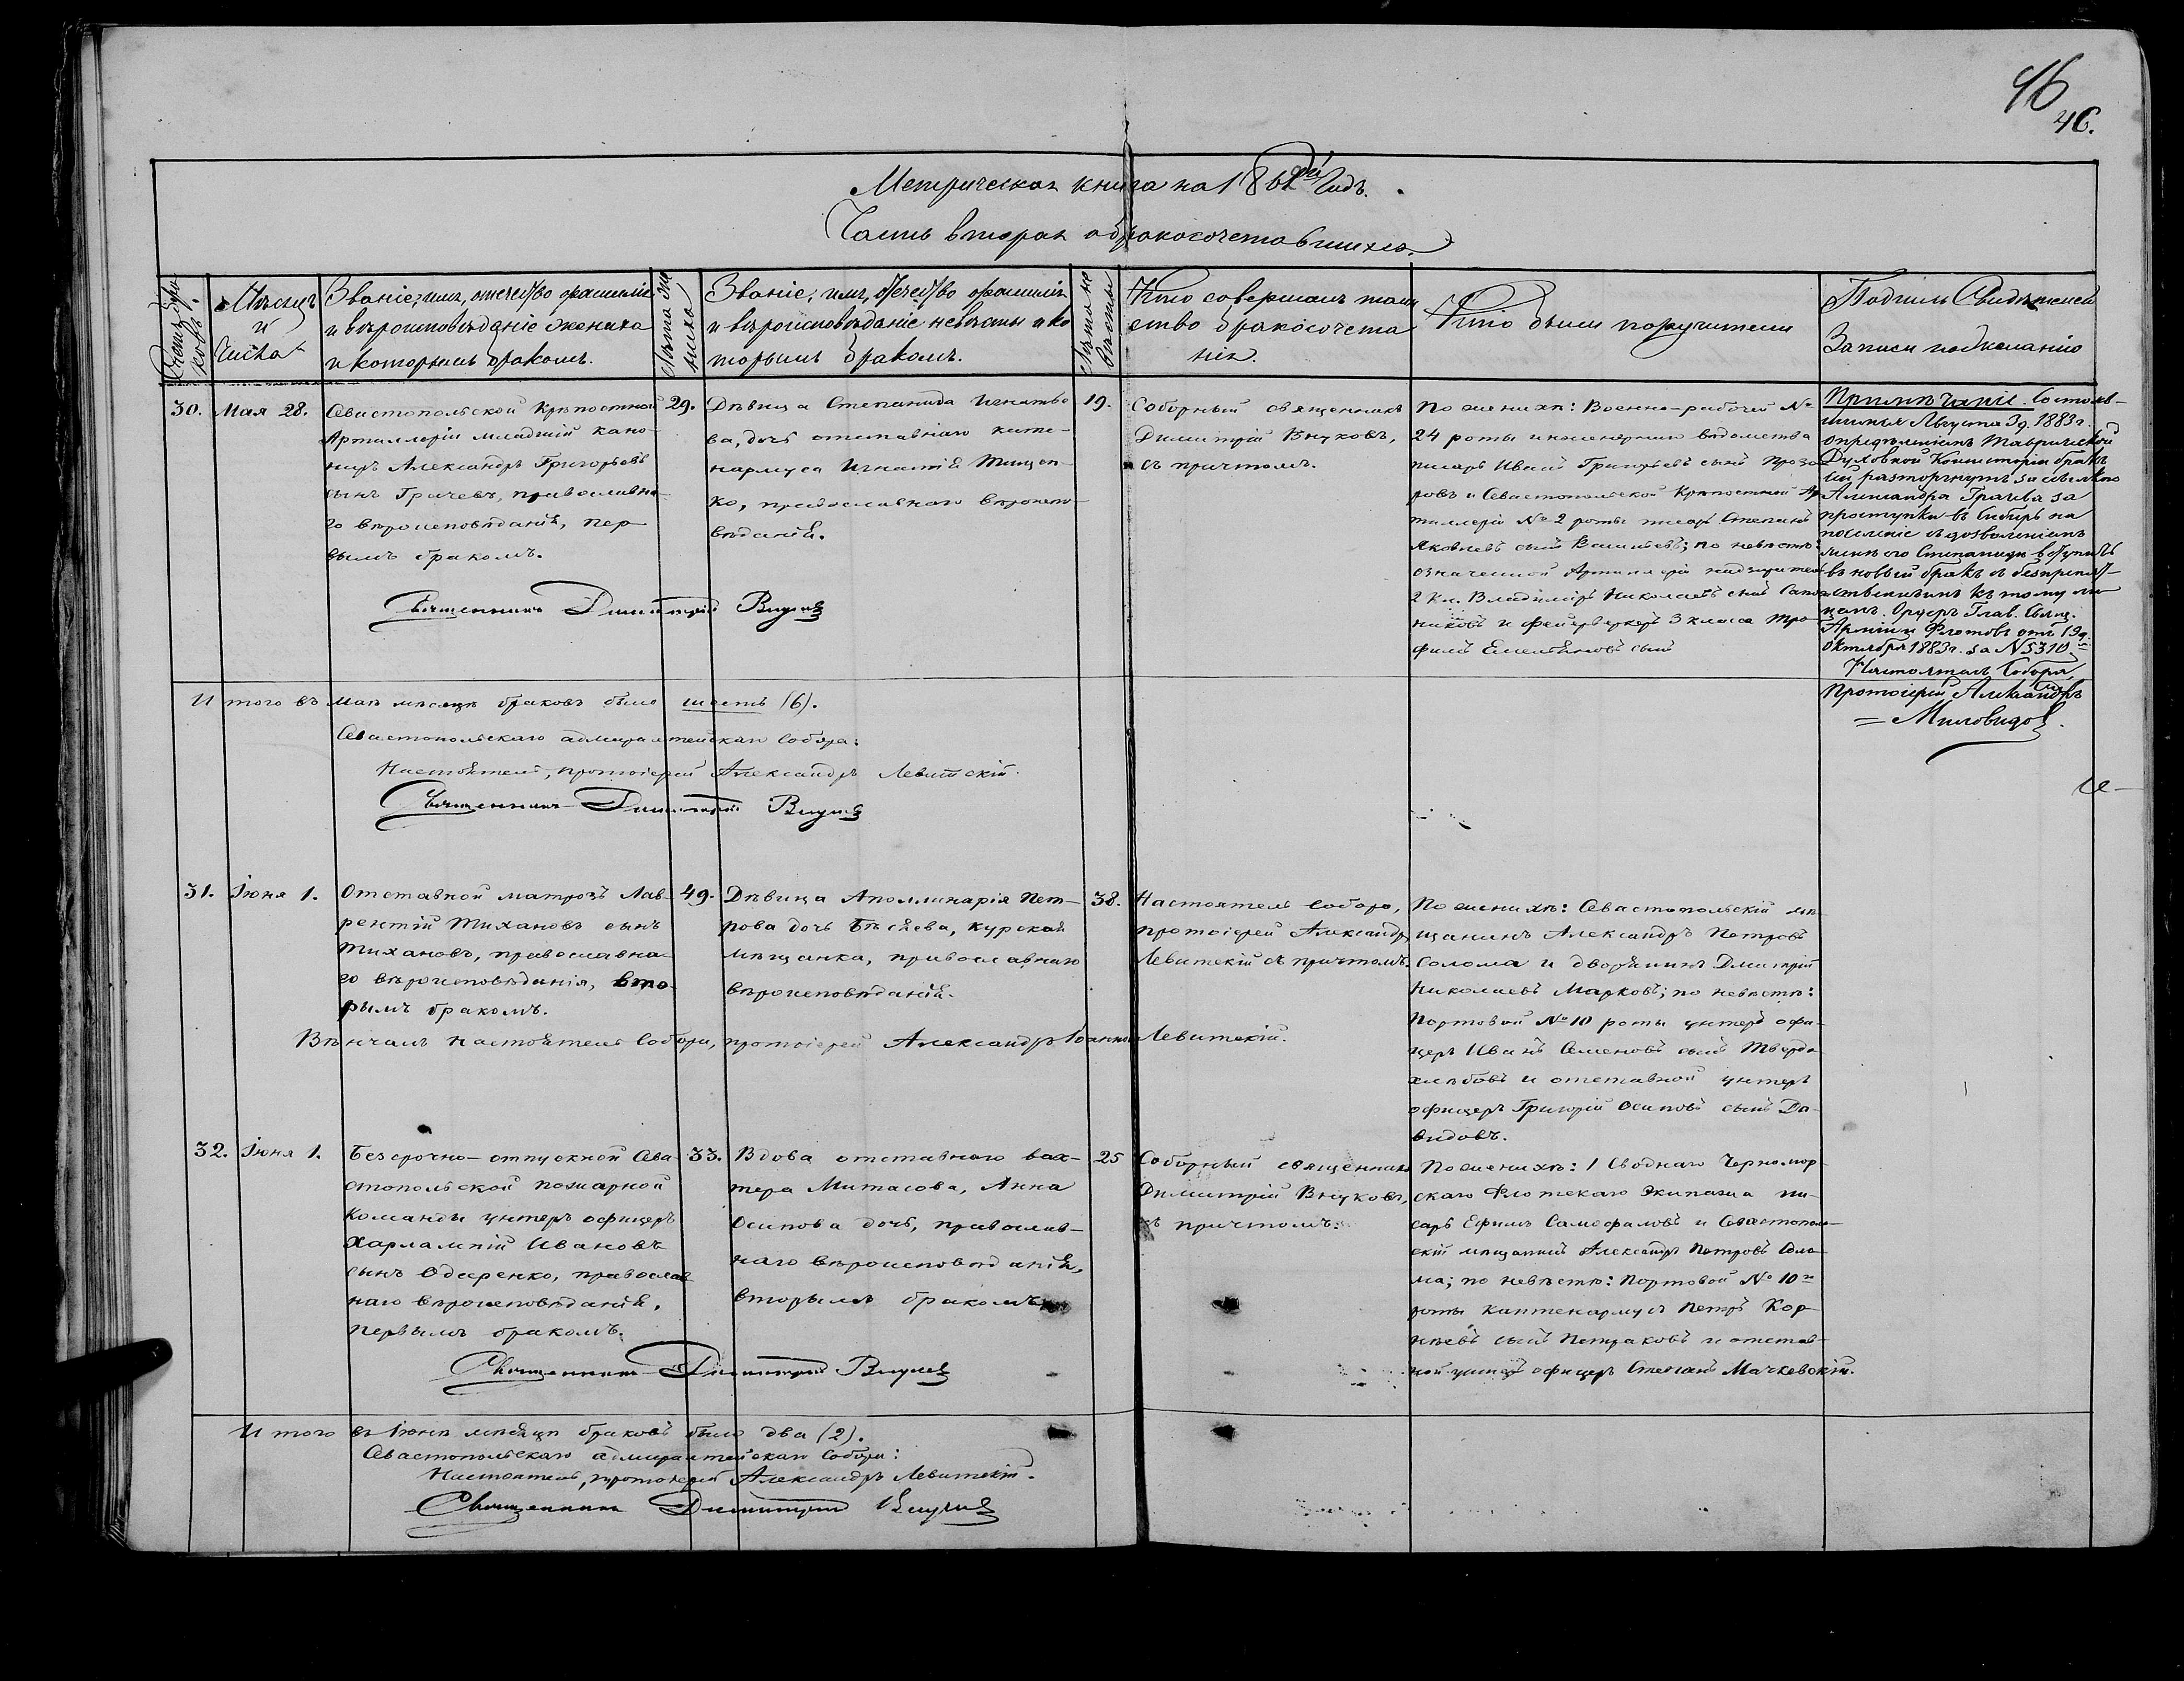 46
46.
Метрическая книга на 1862й Годъ.
Часть вторая о бракосочетавшихся.
Счетъ бра
ковъ.
Мѣсяцъ
и
числа
Званіе, имя, отечество, фамилія
и вѣроисповѣданіе жениха
и которымъ бракомъ.
Лѣта же
ниха
Званіе, имя, отечество фамилія
и вѣроисповѣданіе невѣсты и ко
торымъ бракомъ.
Лѣта не
вѣсты
Кто совершалъ таин
ство бракосочета
нія.
Кто были поручители
Подпись Свидѣтелей
Записи по желанію
30.
Мая 28.
Севастопольской Крѣпостной
Артиллеріи младшій кано-
ниръ Александръ Григорьевъ
сынъ Грачевъ, православна-
го вѣроисповѣданія, пер
вымъ бракомъ.
29.
Дѣвица Степанида Игнатье
ва, дочь отставнаго капте-
нармуса Игнатія Тищен-
ко, православнаго вѣроиспо-
вѣданія.
19.
Соборный священникъ
Димитрій Внуковъ,
съ причтомъ.
По женихѣ: Военно-рабочей №
24 роты инженернаго вѣдомства
писарь Иванъ Григорьевъ сынъ Прозо
ровъ и Севастопольской Крѣпостной Ар
тиллеріи № 2 роты писарь Степанъ
Яковлевъ сынъ Васильевъ; по невѣстѣ:
означенной Артиллеріи надзиратель
2 кл. Владиміръ Николаевъ сынъ Сапо
никовъ и фейерверкеръ 3 класса Тро-
филъ Емельяновъ сынъ
Примѣчаніе. Состояв-
шимся Августа 3д. 1883 г.
опредѣленіемъ Таврической
Духовной Консисторіи бракъ
сей расторгнутъ за ссылкою
Александра Грачева за
проступки въ Сибирь на
поселеніе съ дозволеніемъ
женѣ его Степанидѣ вступить
въ новый бракъ съ безпрепят-
ственнымъ къ тому ли
цомъ. Ордеръ Глав. Свящ.
Арміи и Флотовъ отъ 19д.
Октября 1883г. за № 5310.
Настоятель Собора
Протоіерей Александръ
Миловидовъ.
Священникъ Димитрій Внуковъ
Итого въ маѣ мѣсяцѣ браковъ было шесть (6).
Севастопольскаго адмиралтейскаго Собора:
Настоятель, протоіерей Александръ Левитскій.
Священникъ Димитрій Внуковъ
31.
Іюня 1.
Отставной матрозъ Лав-
рентій Тихановъ сынъ
Тихановъ, православна-
го вѣроисповѣданія, вто-
рымъ бракомъ.
49.
Дѣвица Аполлинарія Пет-
рова дочь Бѣсяева, курская
мѣщанка, православнаго
вѣроисповѣданія.
38.
Настоятель Собора,
протоіерей Александръ
Левитскій съ причтомъ.
По женихѣ: Севастопольскій мѣ
щанинъ Александръ Петровъ
Солома и дворянинъ Дмитрій
Николаевъ Марковъ; по невѣстѣ:
Портовой № 10 роты унтеръ офи-
церъ Иванъ Семеновъ сынъ Твердо
хлѣбовъ и отставной унтеръ
офицеръ Григорій Осиповъ сынъ Да-
видовъ.
Вѣнчалъ Настоятель Собора, протоіерей Александръ Левитскій.
32.
Іюня 1.
Безсрочно-отпускной Сева-
стопольской пожарной
команды унтеръ офицеръ
Харлампій Ивановъ
сынъ Одаренко, православ
наго вѣроисповѣданія,
первымъ бракомъ.
33.
Вдова отставнаго вах-
тера Митасова, Анна
Осипова дочь, православ-
наго вѣроисповѣданія,
вторымъ бракомъ
25
Соборный священникъ
Димитрій Внуковъ,
съ причтомъ.
По женихѣ: 1 Своднаго Черномор
скаго Флотскаго Экипажа пи-
сарь Ефимъ Самофаловъ и Севастополь-
скій мѣщанинъ Александръ Петровъ Соло-
ма; по невѣстѣ: Портовой № 10й
роты каптенармусъ Петръ Кор
нѣевъ сынъ Петраковъ и отстав-
ной унтеръ офицеръ Степанъ Мачкевскій.
Священникъ Димитрій Внуковъ
Итого въ Іюнѣ мѣсяцѣ браковъ было два (2).
Севастопольскаго адмиралтейскаго Собора:
Настоятель, протоіерей Александръ Левитскій.
Священникъ Димитрій Внуковъ